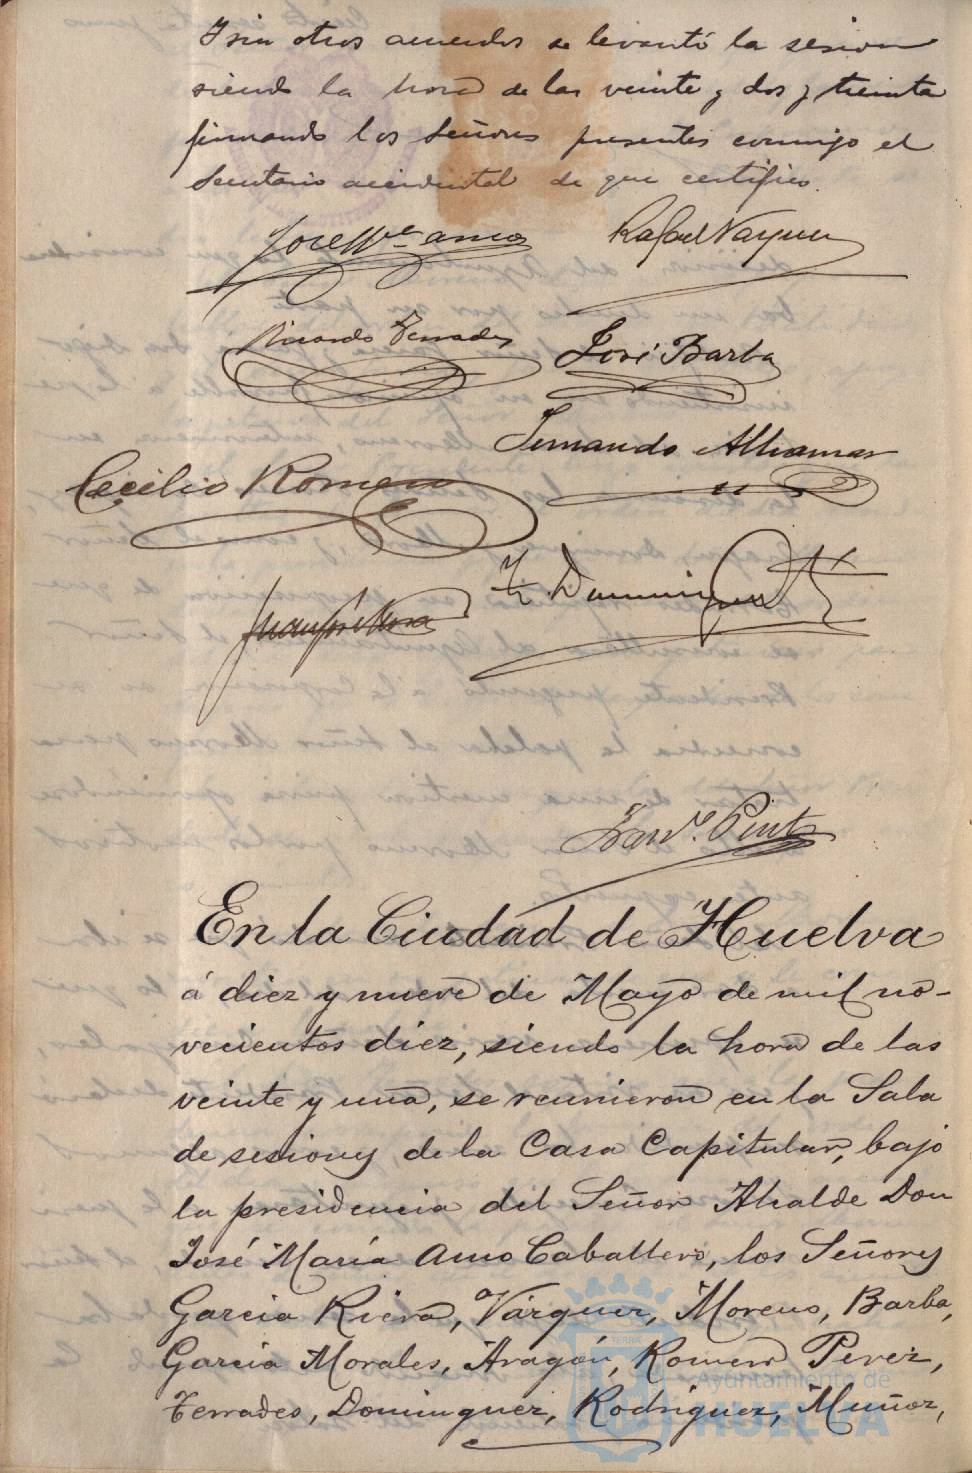 Y sin otros acuerdos se levantó la sesion
siendo la hora de las veinte y dos y treinta
firmando los Señores presentes conmigo el
Secretario accidental de que certifico.
José Mª amo
Rafael Vazquez
Ricardo Terrades
José Barba
Fernando Alhamar
Cecilio Romero
F Dominguez
Juan José Mora
En la Ciudad de Huelva
á diez y nueve de Mayo de mil no-
vecientos diez, siendo la hora de las
veinte y una, se reunieron en la Sala
de sesiones de la Casa Capitular, bajo
la presidencia del Señor Alcalde Don
José María Amo Caballero, los Señores
Garcia Riera, Vázquez, Moreno, Barba,
Garcia Morales, Aragón, Romero Perez,
Terrades, Dominguez, Rodriguez, Muñoz,
Ayuntamiento de
HUELVA